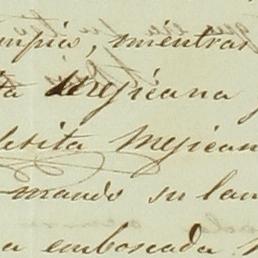 mpio, mientras
ta Mejicana
lesita Mejican
mando su lan
a emboscada